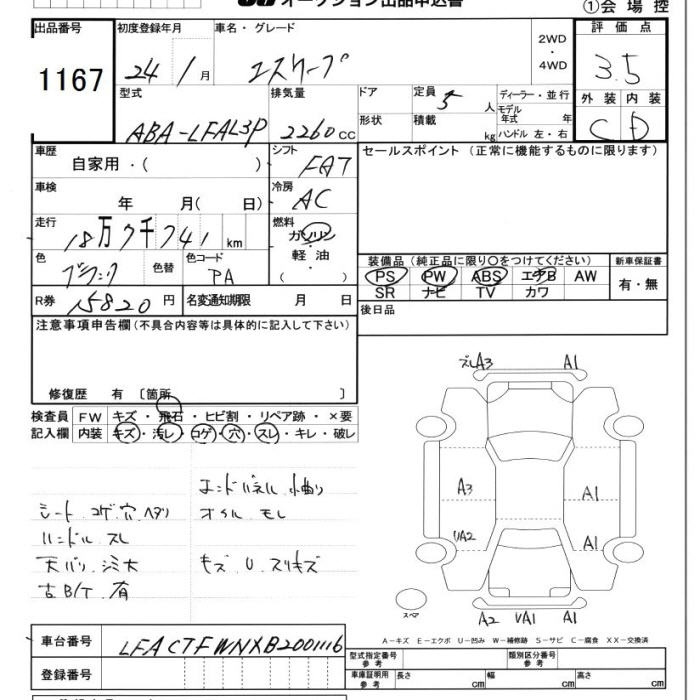 オークション出品申込書
①会場控
出品番号 1167
初度登録年月 24/1月
車名・グレード エスケープ
2WD・4WD
評価点 3.5
外装 C 内装 D
型式 ABA-LFAL3P
排気量 2260cc
ドア
形状
定員 5人
積載 kg
ディーラー・並行
モデル年式 年
ハンドル 左・右
車歴 自家用・( )
シフト FAT
セールスポイント (正常に機能するものに限ります)
車検 年 月( 日)
冷房 AC
走行 18万7千741km
燃料 ガソリン・軽油・( )
色 ブラック 色替
色コード PA
装備品(純正品に限り○をつけてください)
PS PW ABS エアB AW
SR ナビ TV カワ
新車保証書 有・無
R券 15820円
名変通知期限 月 日
後日品
注意事項申告欄(不具合内容等は具体的に記入して下さい)
修復歴 有 〔箇所 〕
検査員記入欄
FW キズ・飛石・ヒビ割・リペア跡・×要
内装 キズ・汚レ・コゲ・穴・スレ・キレ・破レ
エンドパネル 小曲り
シート コゲ.穴.ヘタリ
オイル モレ
ハンドル スレ
天バリ.シミ大
キズ.U.スリキズ
古B/T.有
ズレA3 A1
A3 A1
UA2 A1
スペア
A2 UA1 A1
A-キズ E-エクボ U-凹み W-補修跡 S-サビ C-腐食 XX-交換済
車台番号 LFACTFWNXB2001116
登録番号
型式指定番号 参考
類別区分番号 参考
車庫証明用 参考 長さ cm 幅 cm 高さ cm